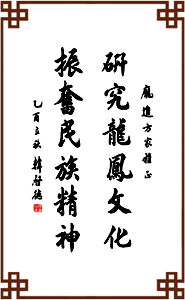 龐進方家雅正
研究龍鳳文化
振奮民族精神
乙酉立秋 韓啓德